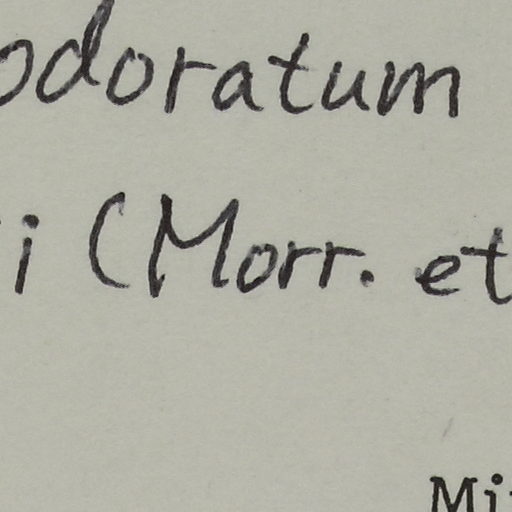 odoratum
i (Morr. et
Mi